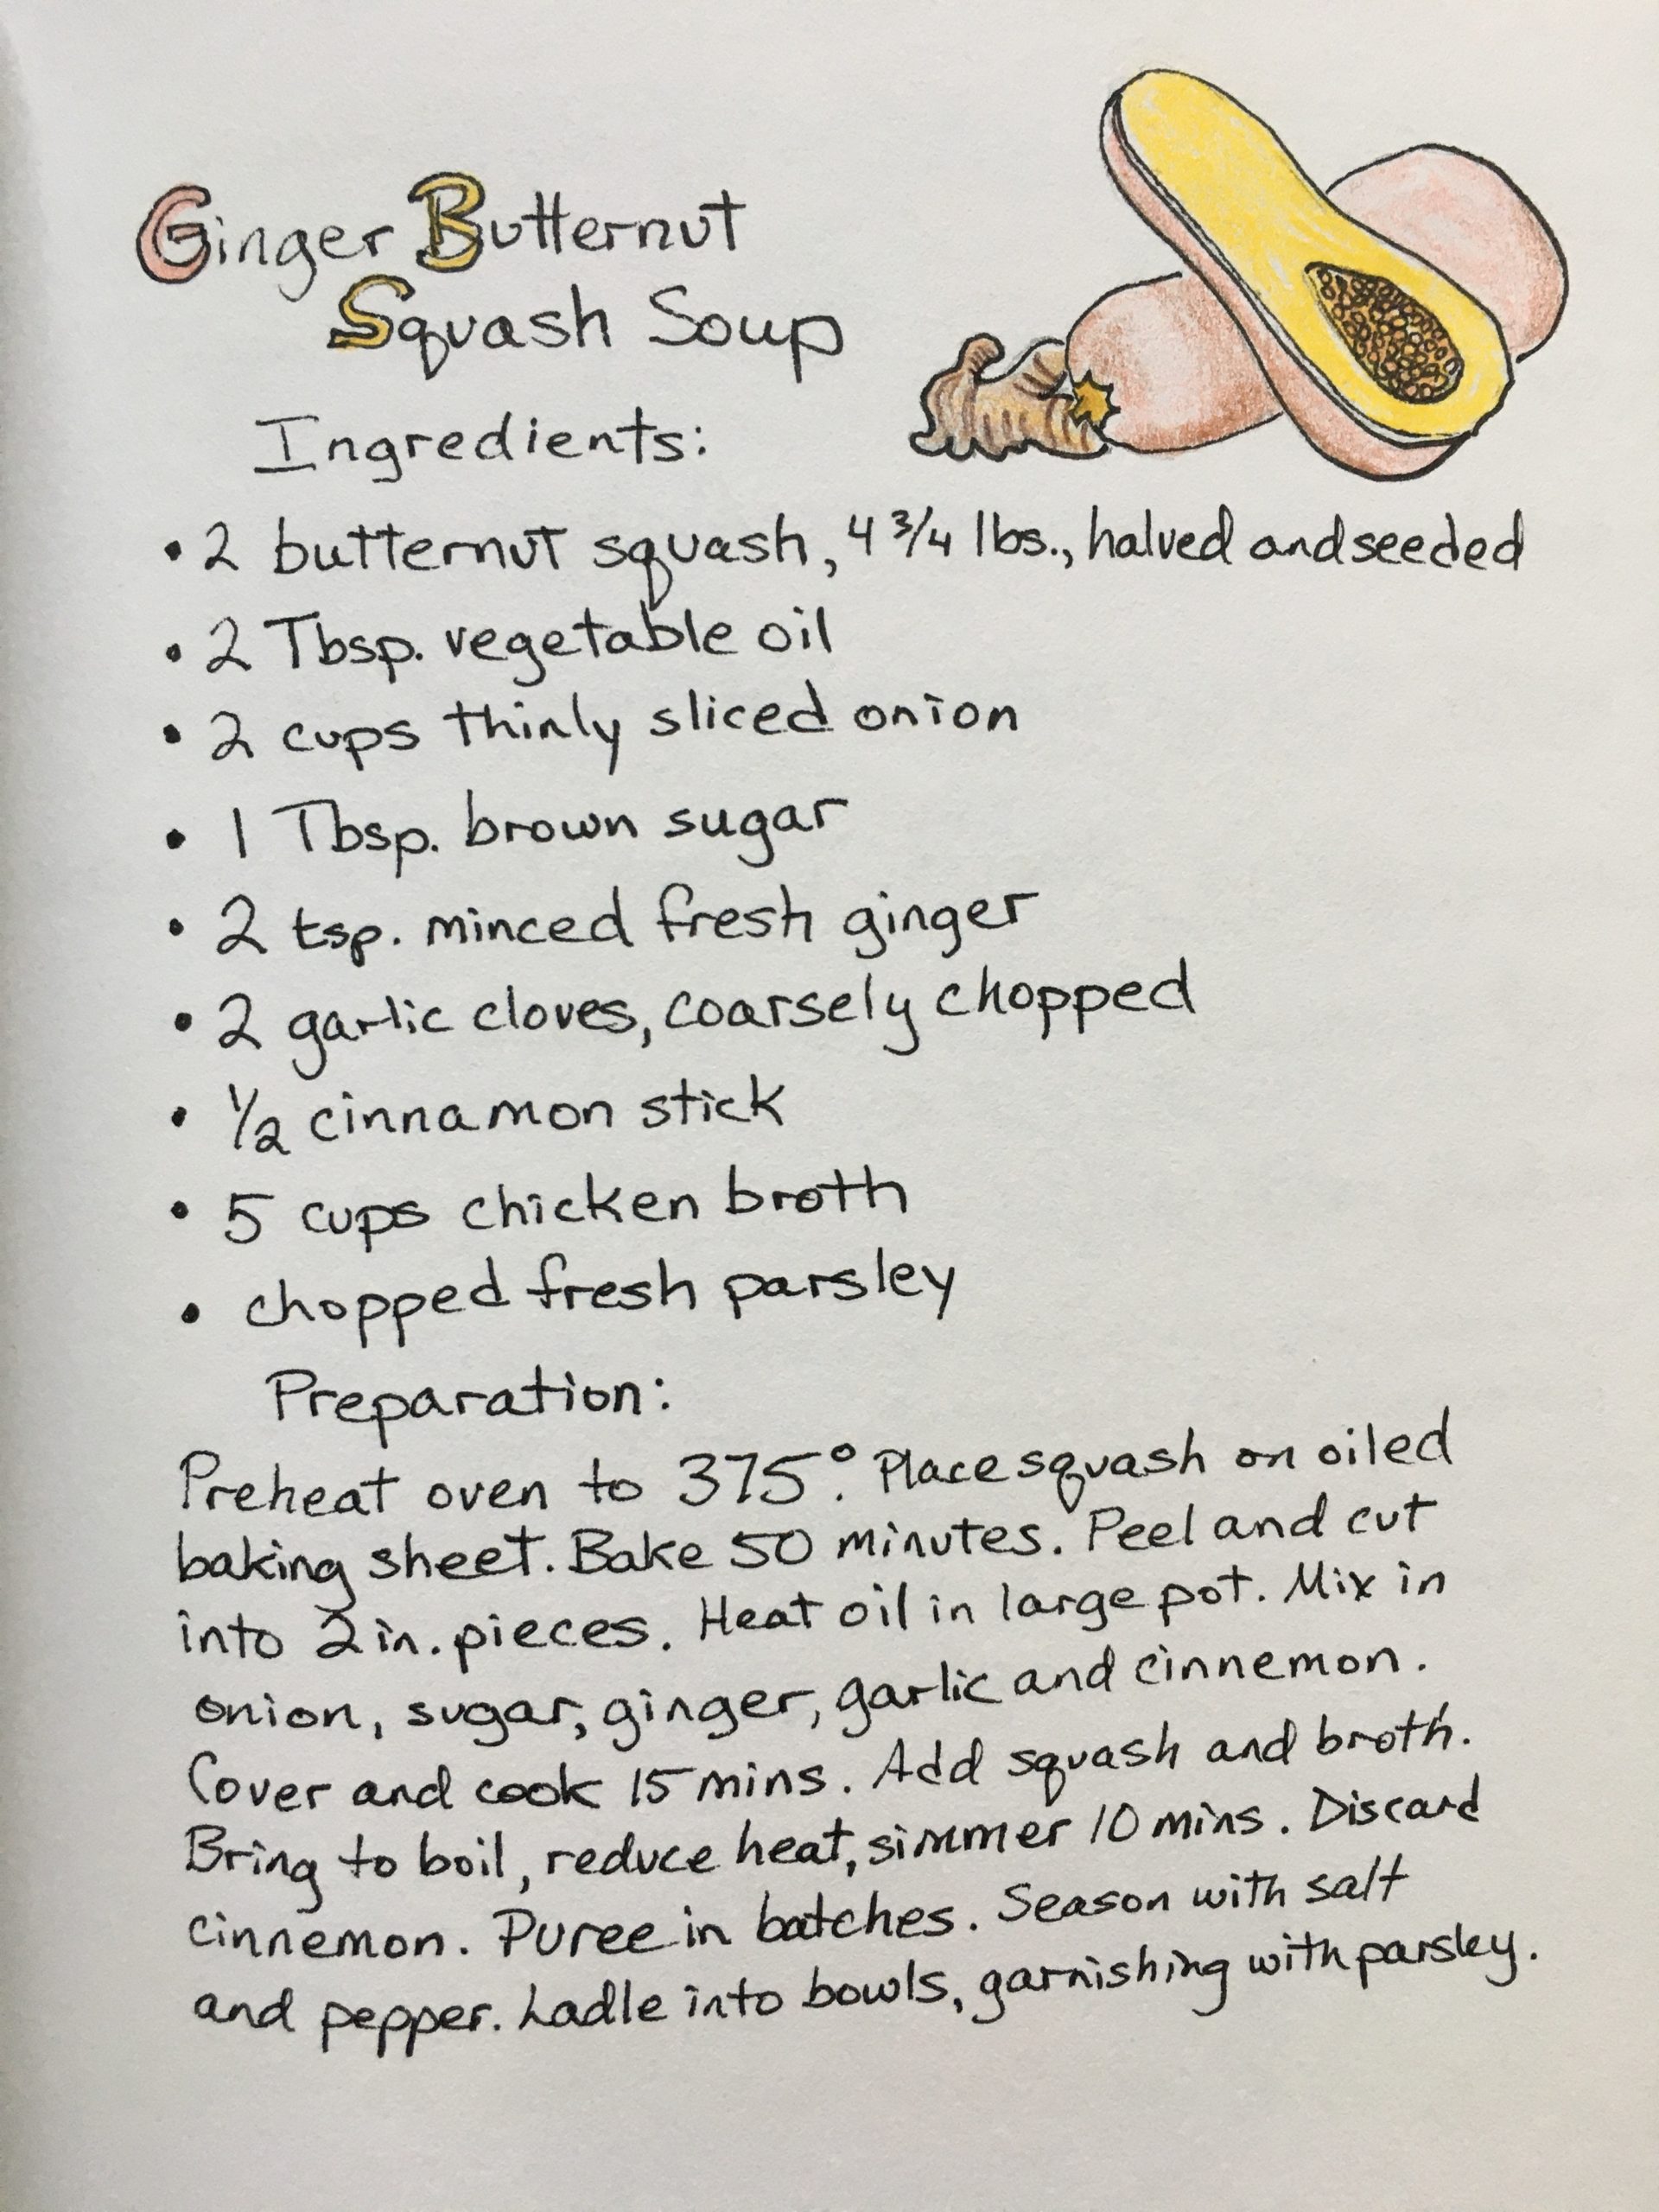 Ginger Butternut
Squash Soup
Ingredients:
• 2 butternut squash, 4 3/4 lbs., halved and seeded
• 2 Tbsp. vegetable oil
• 2 cups thinly sliced onion
• 1 Tbsp. brown sugar
• 2 tsp. minced fresh ginger
• 2 garlic cloves, coarsely chopped
• 1/2 cinnamon stick
• 5 cups chicken broth
• chopped fresh parsley
Preparation:
Preheat oven to 375°. Place squash on oiled
baking sheet. Bake 50 minutes. Peel and cut
into 2 in. pieces. Heat oil in large pot. Mix in
onion, sugar, ginger, garlic and cinnemon.
Cover and cook 15 mins. Add squash and broth.
Bring to boil, reduce heat, simmer 10 mins. Discard
cinnemon. Puree in batches. Season with salt
and pepper. Ladle into bowls, garnishing with parsley.